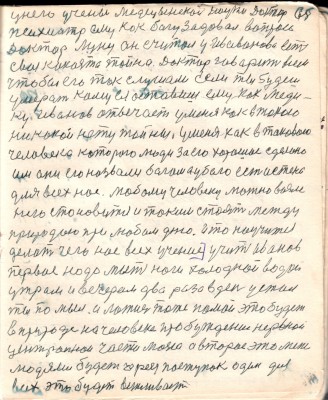 у него ученый медицинской науки доктор 65
психиатр ему как богу задовал вопросы
доктор Луну он считал у Иванова есть
своя какаята тайна. Доктор говорит всем
чтобы его так слушали если ты будеш
умирать кому ты оставиш ему как меди
ку, Иванов отвечает у меня как в такого
никакой нету тайны, у меня как в такового
человека которого люди за его хорошое сделано
им они его назвали богом а у бога есть истена
для всех нас. любому человеку можно взять
него становить и таким стоять между
природою при любом дню. что научить
делать чего нас всех учение учит Иванов
первое надо мыть ноги холодной водой
утром и вечером два раза в день устал
ты помый. и ложися тоже помой это будет
в природе на человека пробуждение нервной
центральной части мозга а второе это между
людями будет через поступок один для
всех это будет вежливасть